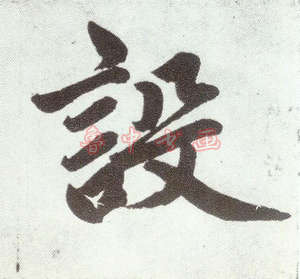 設
鲁中书画